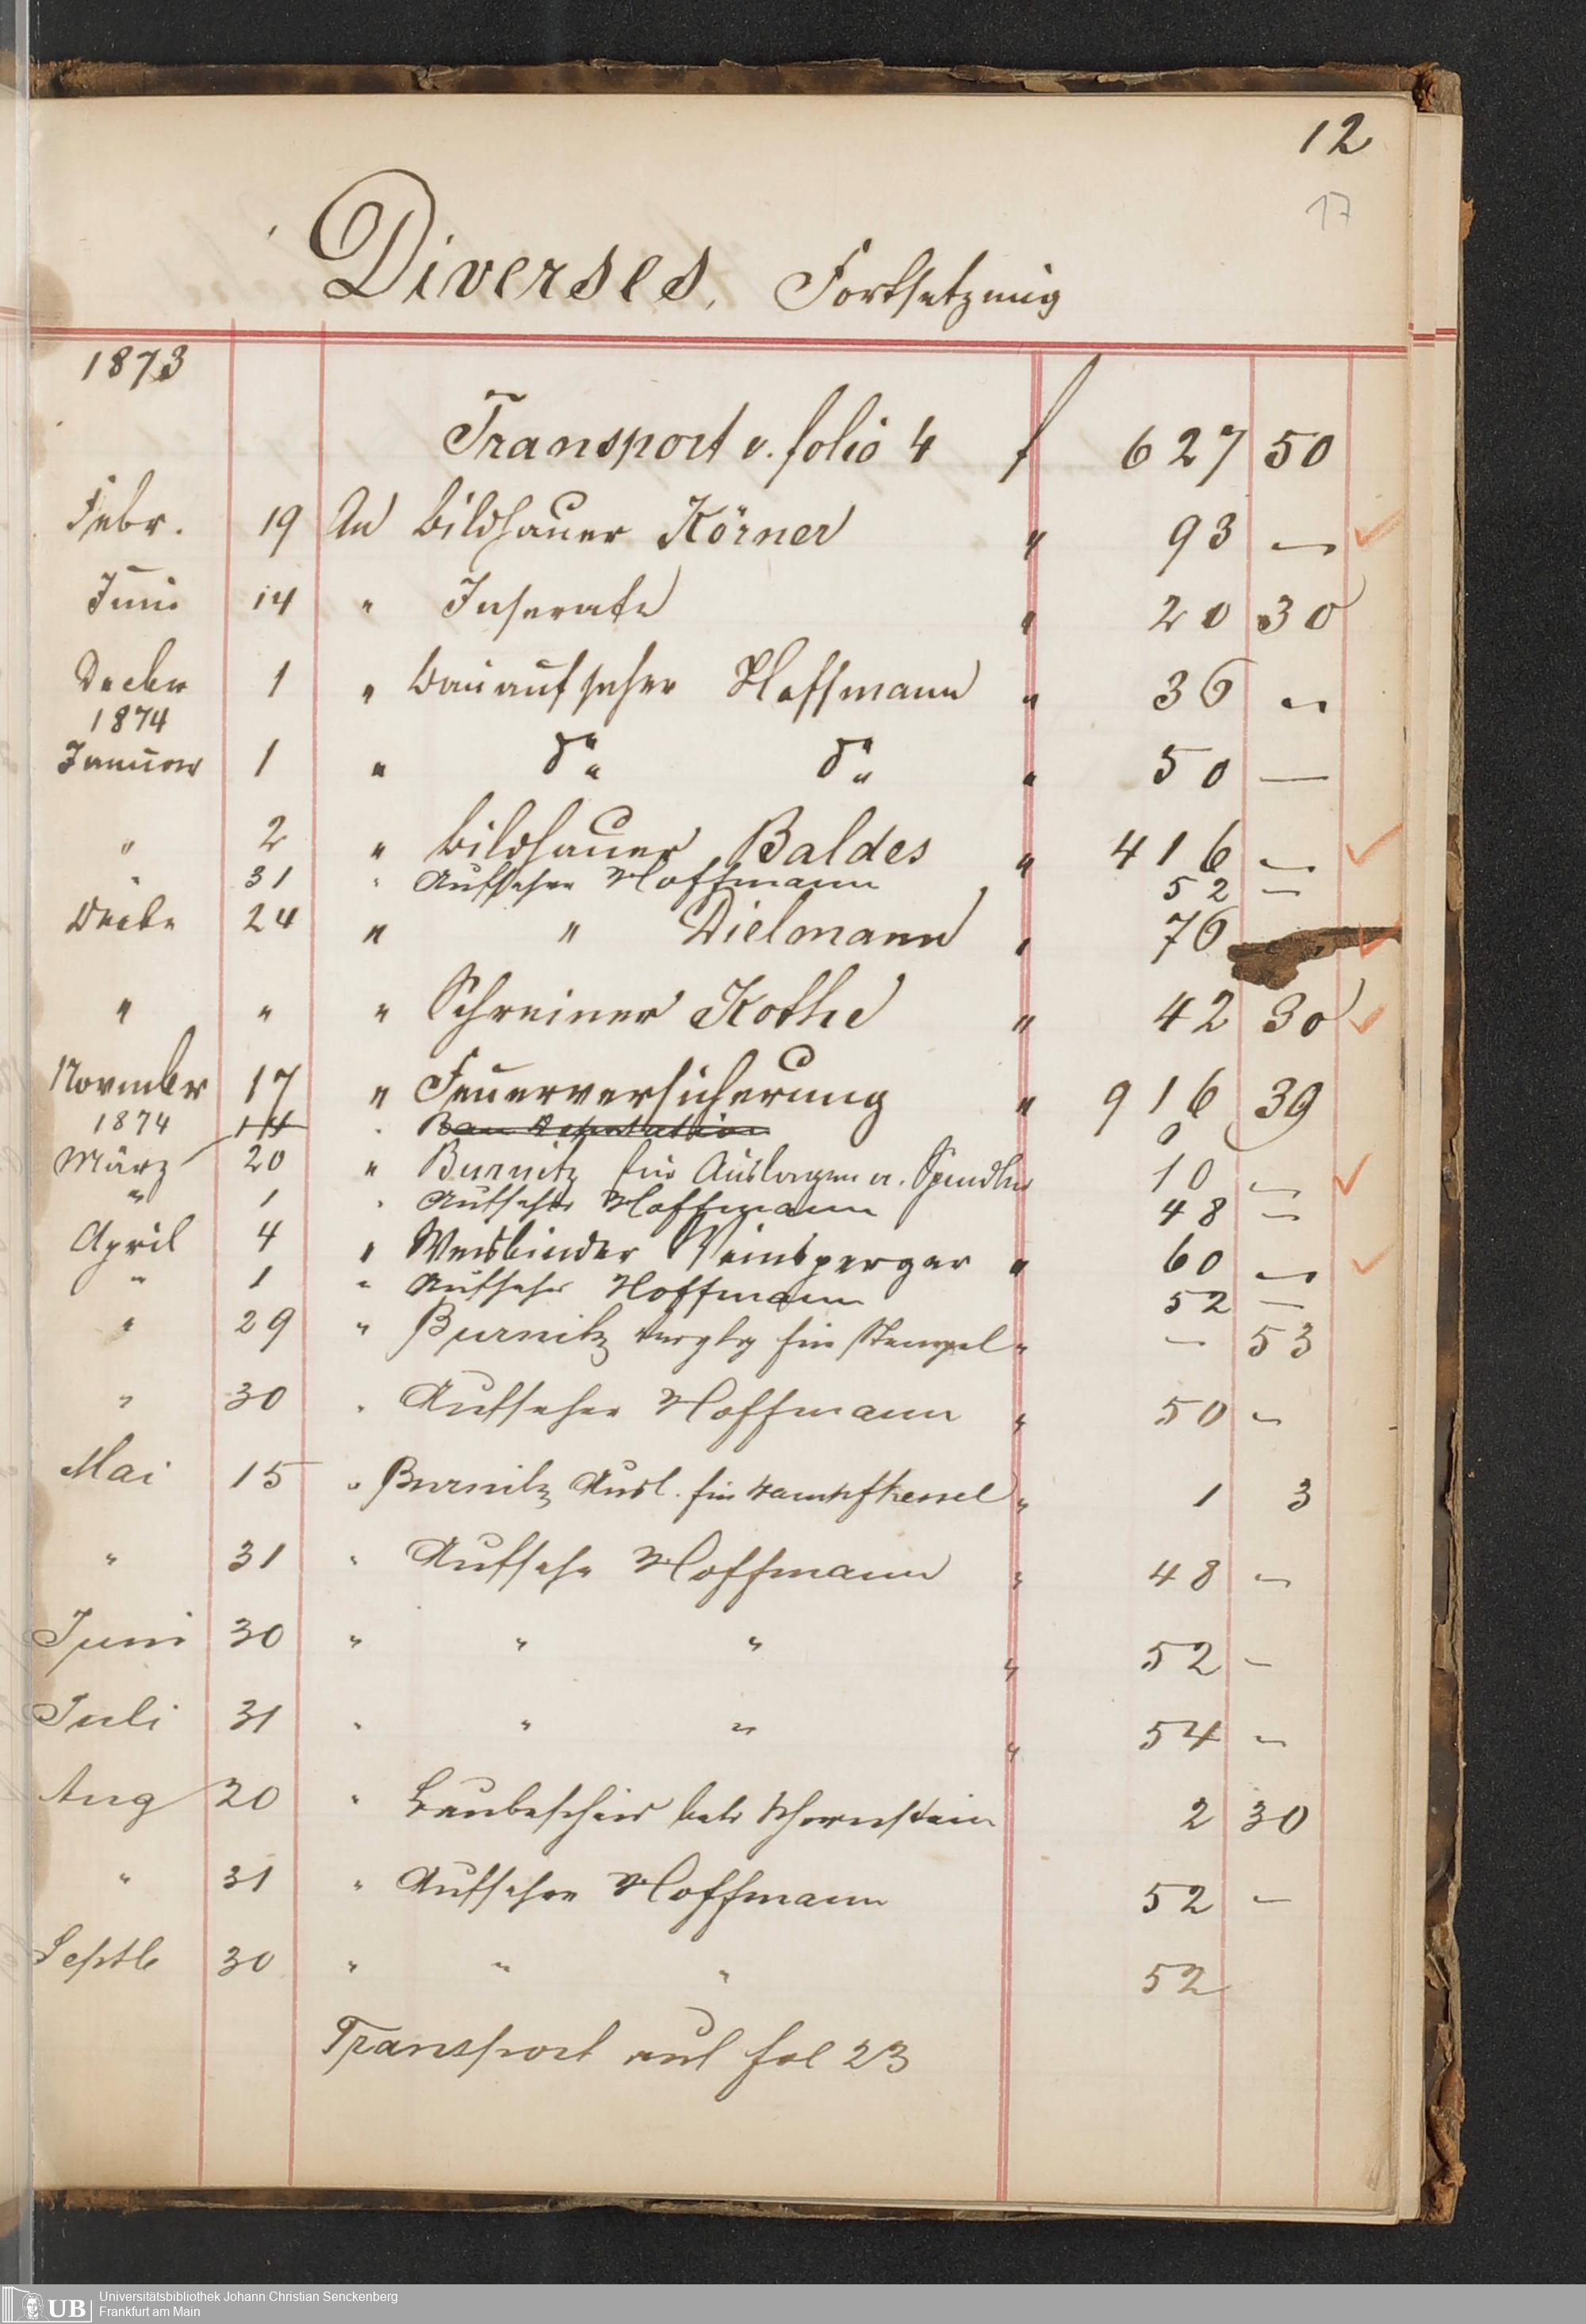 12
17
Diverses, Fortsetzung
1873
Transport v. folio 4 f 627 50
Febr. 19 An Bildhauer Körner " 93 —
Juni 14 " Inserate " 20 30
Decbr 1 " Bauaufseher Hoffmann " 36 —
1874
Januar 1 " do do " 50 —
" 2 " Bildhauer Baldes " 416 —
" 31 " Aufseher Hoffmann 52 —
Decbr 24 " " Dielmann " 76
" " " Schreiner Kothe " 42 30
November 17 " Feuerversicherung " 916 39
1874 14 " Bau Deputation 0
März 20 " Burnitz für Auslagen a. 10 —
" 1 " Aufseher Hoffmann 48 —
April 4 " Weisbinder " 60 —
" 1 " Aufseher Hoffmann 52 —
" 29 " Burnitz für Stempel " — 53
" 30 " Aufseher Hoffmann " 50 —
Mai 15 " Burnitz Ausl. für Dampfkessel " 1 3
" 31 " Aufseher Hoffmann " 48 —
Juni 30 " " " " 52 —
Juli 31 " " " " 54 —
Aug 20 " Baubescheid betr Schornstein 2 30
" 31 " Aufseher Hoffmann 52 —
Septb 30 " " " 52
Transport auf fol 23
UB Universitätsbibliothek Johann Christian Senckenberg
Frankfurt am Main